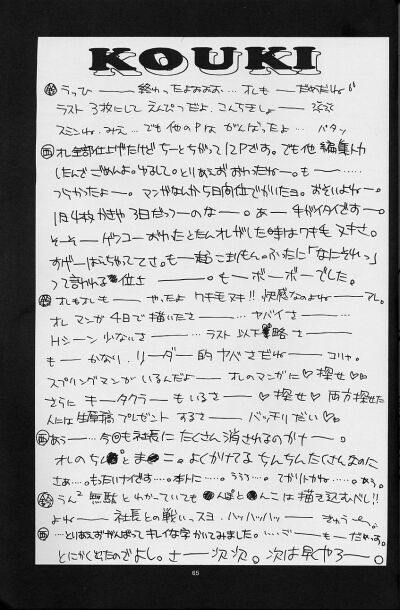 KOUKI
うっひ――― 終わったよおおお… オレも―― だめだね"
ラスト 3枚にして えんぴつだよ。こんちきしょ――
スミンね、みえ… でも他のPは がんばったよ… バタッ
西 オレ全部仕上げたけど ちーとちがって12Pです。でも他 編集入力
したんでごめんよ。ゆるして。とりあえずおわたね―。も――……
つらかったよ―。マンガなんか5日向位でかいたヨ。おそいよね―。
1月4枚かきゃ3日だっつ―のな――。あ― チガイタイです―。
そ―そ―ゲッコーおわたとたんオレがした時はワキモヌキさ。
すげーはらちゃっててさ。も― ふたに「なにそれっ」
って言われる位さ――――。も――ボーボーでした。
オレもオレも―― やったよ ワキモヌキ!! 快感なのよね――アレ。
オレ マンガ 4日で描いたさ――――…ヤバイさ――――…
Hシーン少ないさ――――…ラスト以下略さ――
も― かなり、リーダー的ヤバさだね―― コリャ。
スプリングマンがいるんだよ―― オレのマンガに♡探せ♡
さらに キータクラー もいるさ――♡探せ♡ 両方探せた
人には生原稿プレゼントするさ―― バッチリだい♡。
西 あぅ――…今回も社長に たくさん消されるのかナ――。
オレのち と ま こ。よくかけてる ちんちんたくさんなのに
さぁ…。もったいナイですぅ…。本トに……。うるる…。てかりトかね……。あぅ。
うん² 無駄とわかっていても んぽと んこは描き込むべし!!
よね―― 社長との戦いっスヨ。ハッハッハッ――
西 …とりあえずがんばってキレイな字かいてみました。… も――だめっす。
とにかく出たのでよし。さ―次次。次は早くやろ――。
65